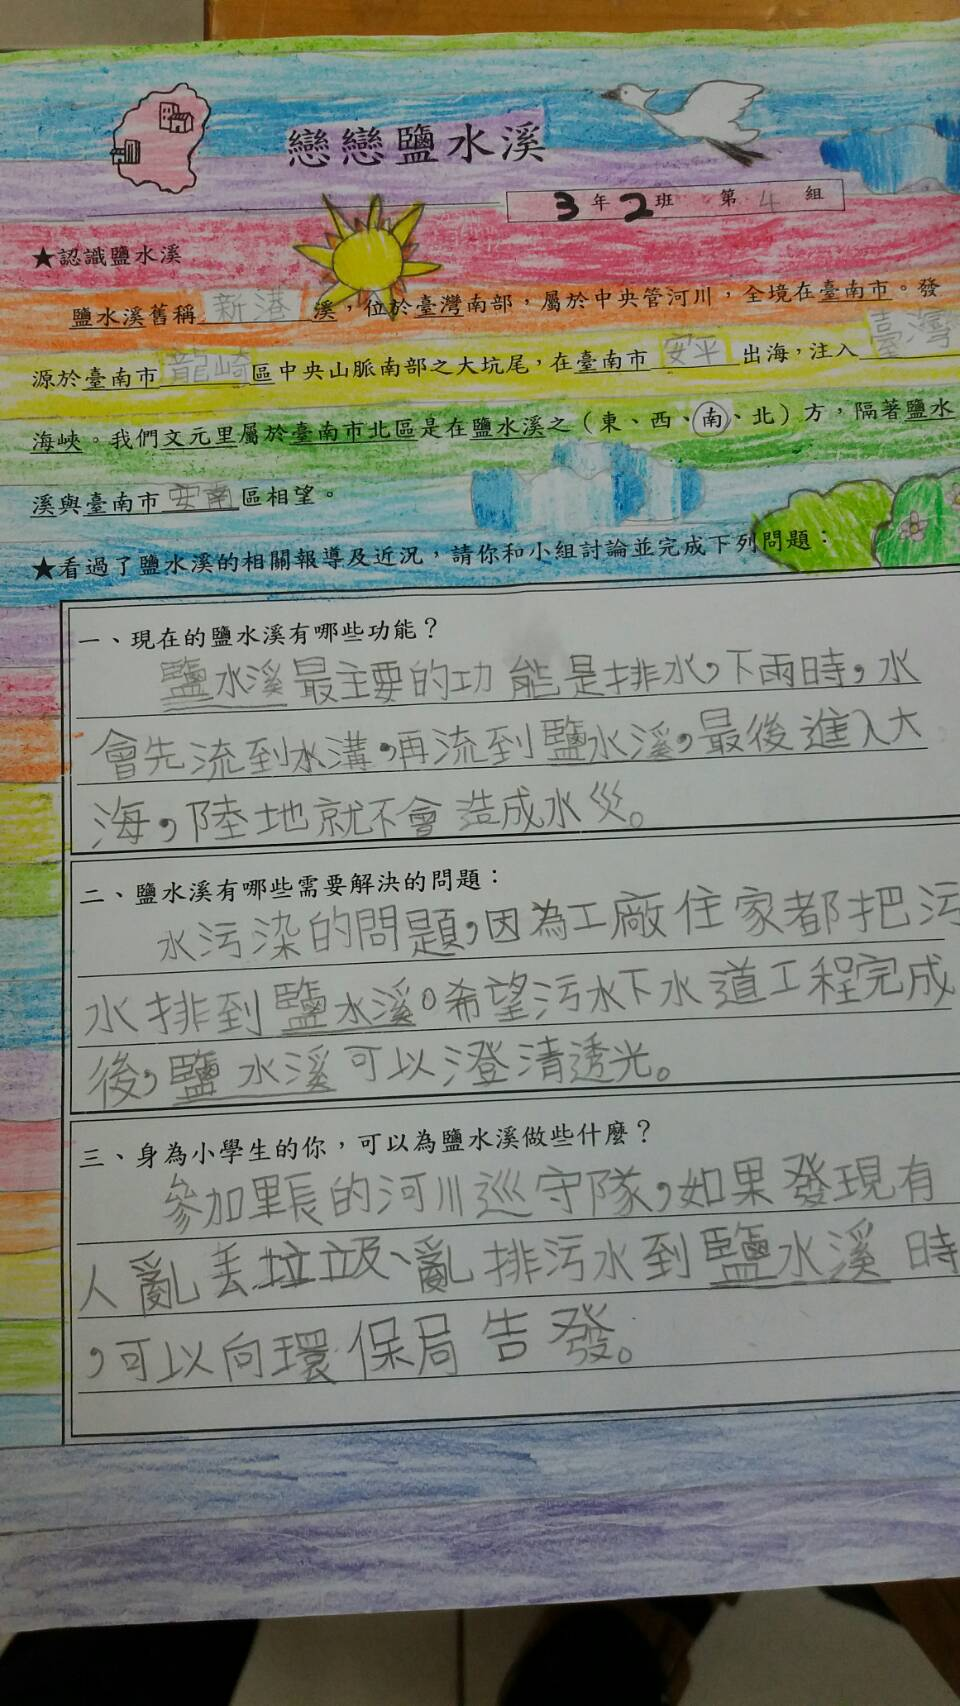 戀戀鹽水溪
3年2班 第4組
★認識鹽水溪
鹽水溪舊稱新港溪，位於臺灣南部，屬於中央管河川，全境在臺南市。發
源於臺南市龍崎區中央山脈南部之大坑尾，在臺南市安平出海，注入臺灣
海峽。我們文元里屬於臺南市北區是在鹽水溪之（東、西、南、北）方，隔著鹽水
溪與臺南市安南區相望。
★看過了鹽水溪的相關報導及近況，請你和小組討論並完成下列問題：
一、現在的鹽水溪有哪些功能？
鹽水溪最主要的功能是排水，下雨時，水
會先流到水溝，再流到鹽水溪，最後進入大
海，陸地就不會造成水災。
二、鹽水溪有哪些需要解決的問題：
水污染的問題，因為工廠住家都把污
水排到鹽水溪。希望污水下水道工程完成
後，鹽水溪可以澄清透光。
三、身為小學生的你，可以為鹽水溪做些什麼？
參加里長的河川巡守隊，如果發現有
人亂丟垃圾、亂排污水到鹽水溪時
，可以向環保局告發。